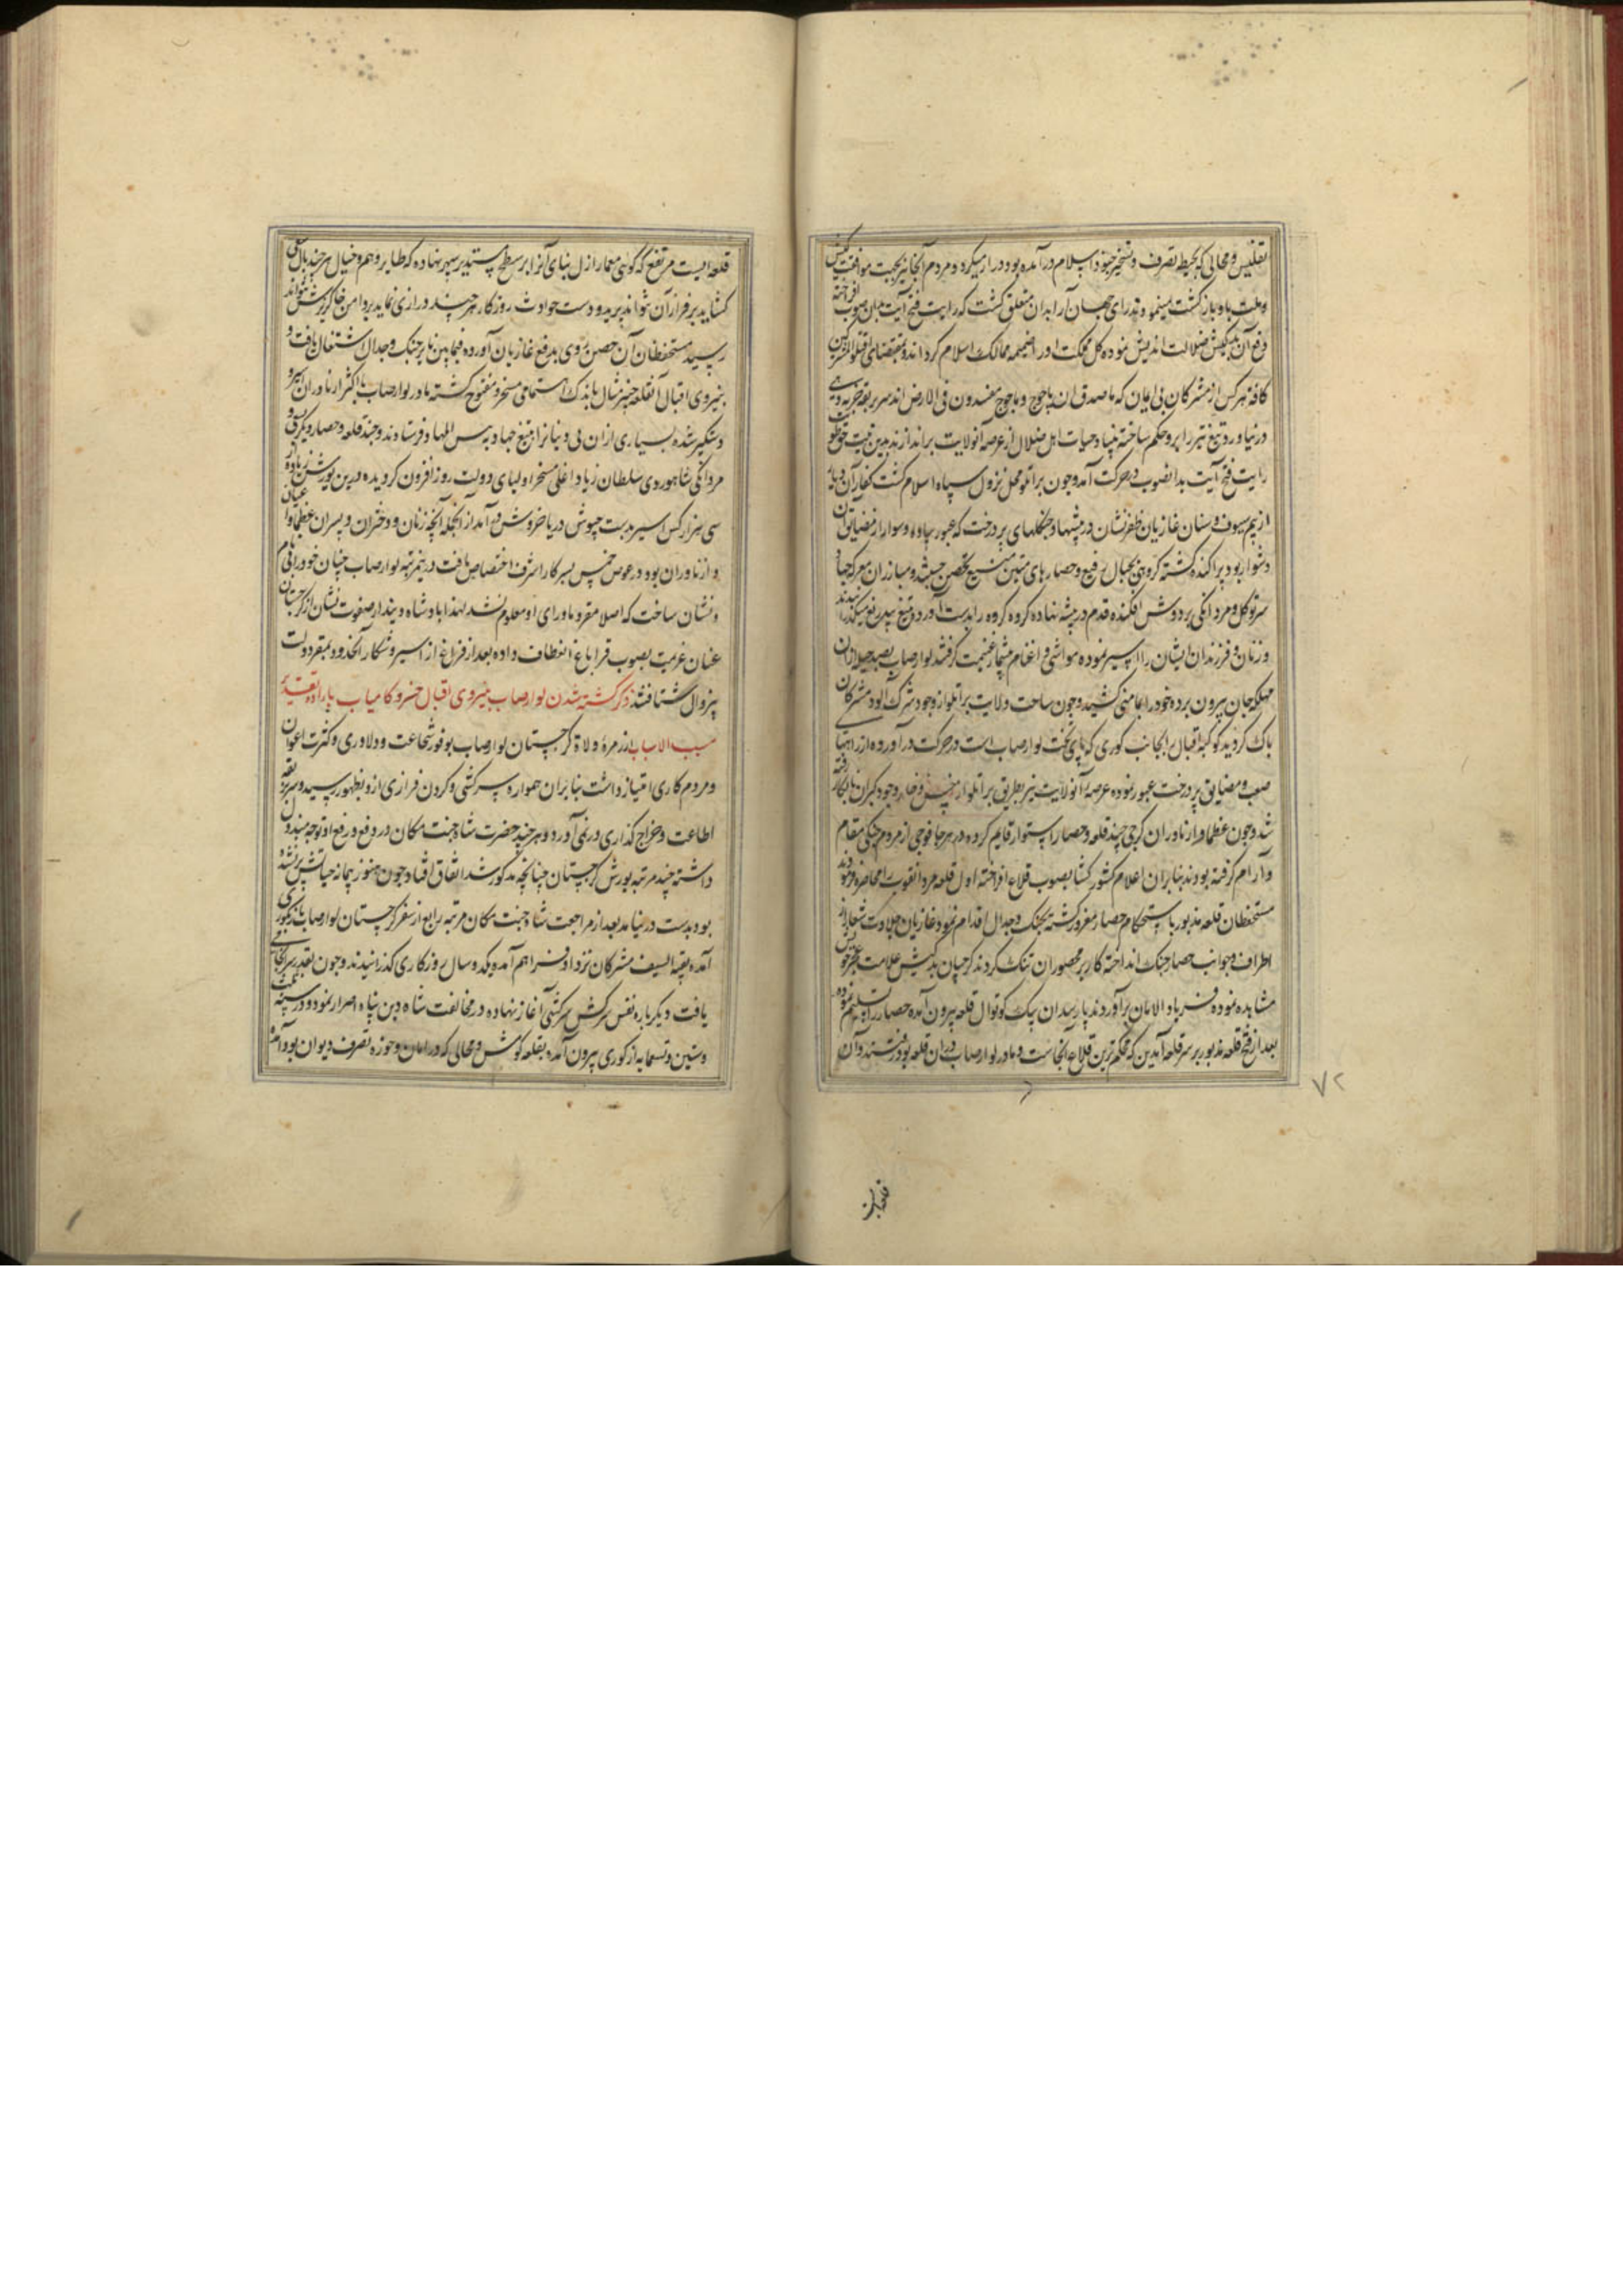 تفلیس و محالی که بحیطه تصرف و تسخیر جنود اسلام درآمده بود دراز میکرد و مردم آنجا نیز بجهت موافقت کیش
و ملت باو بازگشت مینمود و تدرای جهان آرا بدان متعلق گشت که رایت فتح آیت بدان صوب افراخته
دفع آن بدکیش ضلالت اندیش نموده کل مملکت او را ضمیمه ممالک اسلام کرداند و بمقتضای اقتلوا المشرکین
کافة هر کس از مشرکان بی ایمان که ماصدق ان یاجوج و ماجوج مفسدون فی الارض اند سر بربقه جزیه
در نیاورد تیغ تیز را برو حکم ساخته بنیاد حیات اهل ضلال از عرصه آنولایت براندازند بدین نیت
رایت فتح آیت بدانصوب در حرکت آمد و چون براتلو محل نزول سپاه اسلام کشت کفار آن دیار
از بیم سیوف و سنان غازیان ظفر نشان در بیشها و جنکلهای پر درخت که عبور پیاده و سوار از مضایق آن
دشوار بود پراکنده کشته کروهی بجبال رفیع و حصارهای متین منیع متحصن جستند و مبارزان معرکه جهاد
سر توکل و مردانکی بر دوش افکنده قدم در بیشه نهاده کروه کروه را بدست آورده تیغ بیدریغ میکذرانیدند
و زنان و فرزندان ایشان را اسیر نموده مواشی و اغنام بیشمار غنیمت کرفتند لوارصاب بصد حیله ازان
مهلکه جان بیرون برده خود را بمامنی کشید و چون ساحت ولایت براتلو از وجود شرک آلود مشرکان
پاک کردید کوکبه اقبال بجانب کوری که پای تخت لوارصاب است در حرکت درآورده از راههای
صعب و مضایق پر درخت عبور نموده عرصه آنولایت نیز بطریق براتلو از خس و خار وجود کبران نابکار رفته
شد و چون عظما و ازناوران کرجی چند قلعه و حصار استوار قایم کرده در هر جا فوجی از مردم جنکی مقام
و آرام کرفته بودند بنابران اعلام کشور کشا بصوب قلاع افراخته اول قلعه مردانقوب را محاصره فرمودند
مستحفظان قلعه مذبور باستحکام حصار مغرور کشته بجنک و جدال اقدام نمود غازیان جلادت شعار از
اطراف و جوانب حصار جنک انداخته کار بر محصوران تنک کردند کرجیان بدکیش علامت عجز خویش
مشاهده نموده فریاد الامان برآوردند پارسدان بیک کوتوال قلعه بیرون آمده حصار را تسلیم نموده
بعد از فتح قلعه مذبور بر سر قلعه آیدین که محکم ترین قلاع آنجاست و مادر لوارصاب دران قلعه بود رفتند و آن
قلعه ایست
۷۲
قلعه ایست مرتفع که کویی معمار ازل بنای آنرا بر سطح مستدیر سپهر نهاده که طایر وهم و خیال هر چند بال
کشاید بر فراز آن نتواند پرید و دست حوادث روزکار هر چند درازی نماید بدامن خاکریزش نتواند
رسید مستحفظان آن حصن روی بدفع غازیان آورده فیمابین نایر جنک و جدال اشتعال یافت و
بنیروی اقبال آنقلعه خیبر مثال باندک اهتمامی مسخر و مفتوح کشته مادر لوارصاب با اکثر ازناوران اسیر و
دستکیر شده بسیاری ازان بی دینانرا بتیغ جهاد به بئس المهاد فرستادند و چند قلعه و حصار دیکر
مردانکی شاهوردی سلطان زیاد اغلی مسخر اولیای دولت روز افزون کردیده درین یورش زیاده از
سی هزار کس اسیر بدست جیوش دریا خروش درآمد از آنجمله آنچه زنان و دختران و پسران عظما و اعیان
و ازناوران بود در عوض خمس بسرکار اشرف اختصاص یافت درینمرتبه لوارصاب چنان خود را
و نشان ساخت که اصلا مقر و ماورای او معلوم نشد لهذا پادشاه دیندار صفوت نشان از کرجستان
عنان عزیمت بصوب قراباغ انعطاف داده بعد از فراغ از سیر و شکار آنحدود بمقر دولت
بیزوال شتافتند ذکر کشته شدن لوارصاب بنیروی اقبال خسرو کامیاب باراده و تقدیر
مسبب الاسباب از زمره ولاة کرجستان لوارصاب بوفور شجاعت و دلاوری و کثرت اعوان
و مردم کاری امتیاز داشت بنابران همواره سرکشی و کردن فرازی ازو بظهور رسیده سر بربقه
اطاعت و خراج کذاری در نمی آورد و هر چند حضرت شاه جنت مکان در دفع و رفع او توجه مبذول
داشته چند مرتبه یورش کرجستان چنانچه مذکور شد اتفاق افتاد چون هنوز پیمانه حیاتش پر نشده
بود بدست در نیامد بعد از مراجعت شاه جنت مکان مرتبه رابع از سفر کرجستان لوارصاب باز بکوری
آمده بقیة السیف مشرکان نزد او فراهم آمده یکدو سال روزکاری کذرانیدند و چون بقدر سرانجامی
یافت دیکر باره نفس سرکش سرکشی آغاز نهاده در مخالفت شاه دین پناه اصرار نمود و در سنه
و ستین و تسعمایه از کوری بیرون آمده بقلعه کوش و محالی که در امان و حوزه تصرف دیوان بود آمده